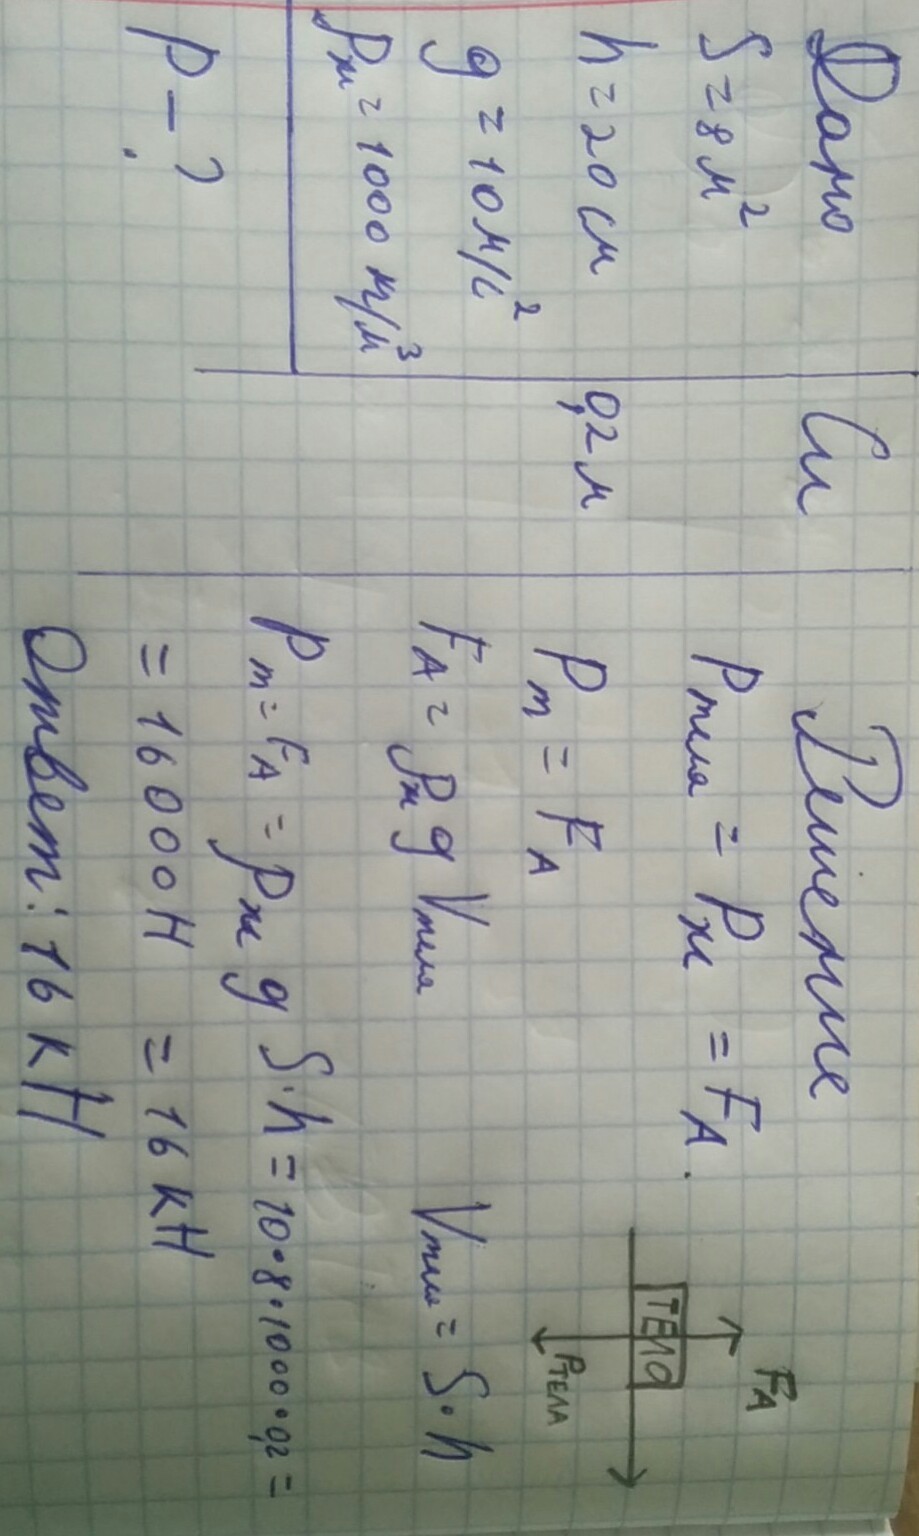 Дано
S = 8 м²
h = 20 см
g = 10 м/с²
ρж = 1000 кг/м³
P - ?
Си
0,2 м
Решение
Pтела = Pж = FA.
Pт = FA
FA = ρж g Vтела Vтела = S·h
Pт = FA = ρж g S·h = 10·8·1000·0,2 =
= 16000 Н = 16 кН
Ответ: 16 кН
FA
ТЕЛО
PТЕЛА